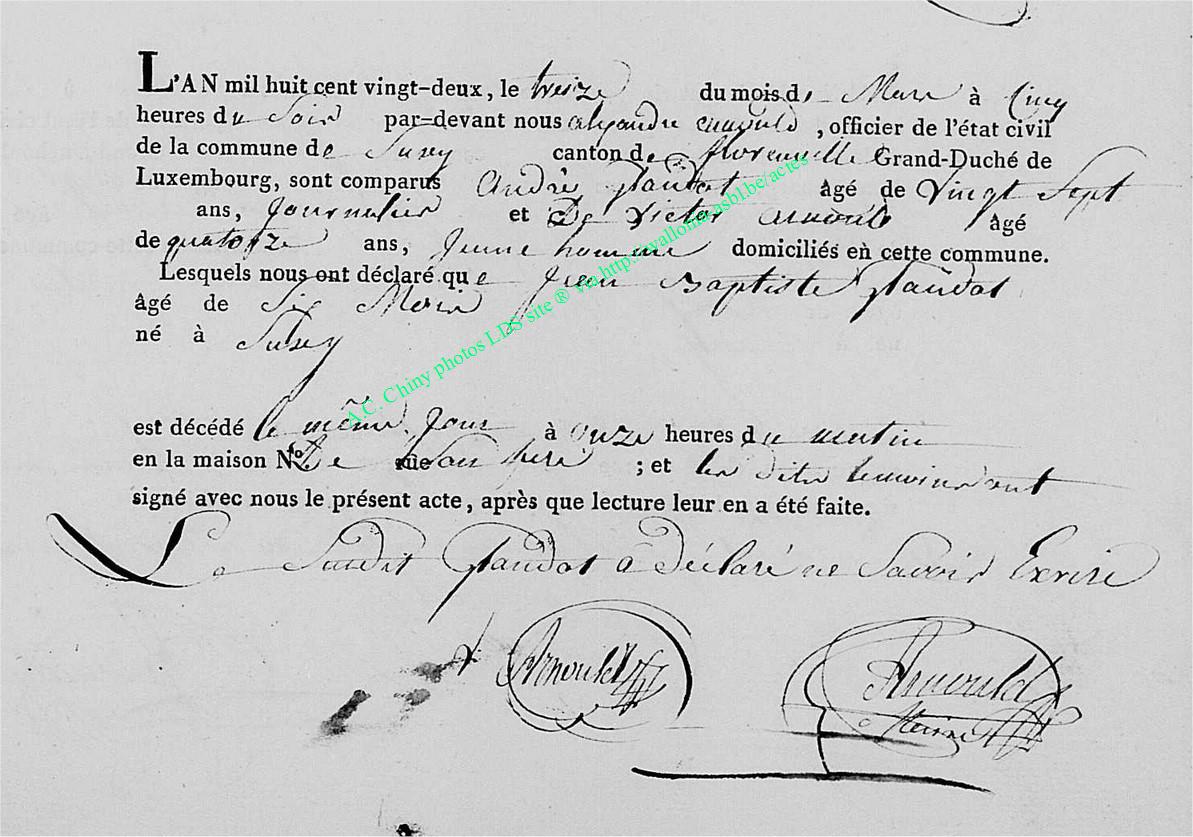 L'AN mil huit cent vingt-deux, le treize du mois de Mars à Cinq
heures du Soir par-devant nous alexandre arnould, officier de l'état civil
de la commune de Suxy canton de florenville Grand-Duché de
Luxembourg, sont comparus André Glaudot âgé de Vingt Sept
ans, Journalier et De Victor arnould âgé
de quatorze ans, Jeune homme domiciliés en cette commune.
Lesquels nous ont déclaré que Jean Baptiste Glaudot
âgé de Six Mois
né à Suxey
est décédé le même Jour à onze heures du matin
en la maison No. De rue Son pere ; et les dits temoins ont
signé avec nous le présent acte, après que lecture leur en a été faite.
Le Susdit Glaudot a Déclaré ne Savoir Excrire
Arnould
Arnould
A.C. Chiny photos LDS site ® via http://wallonia.asbl.be/actes